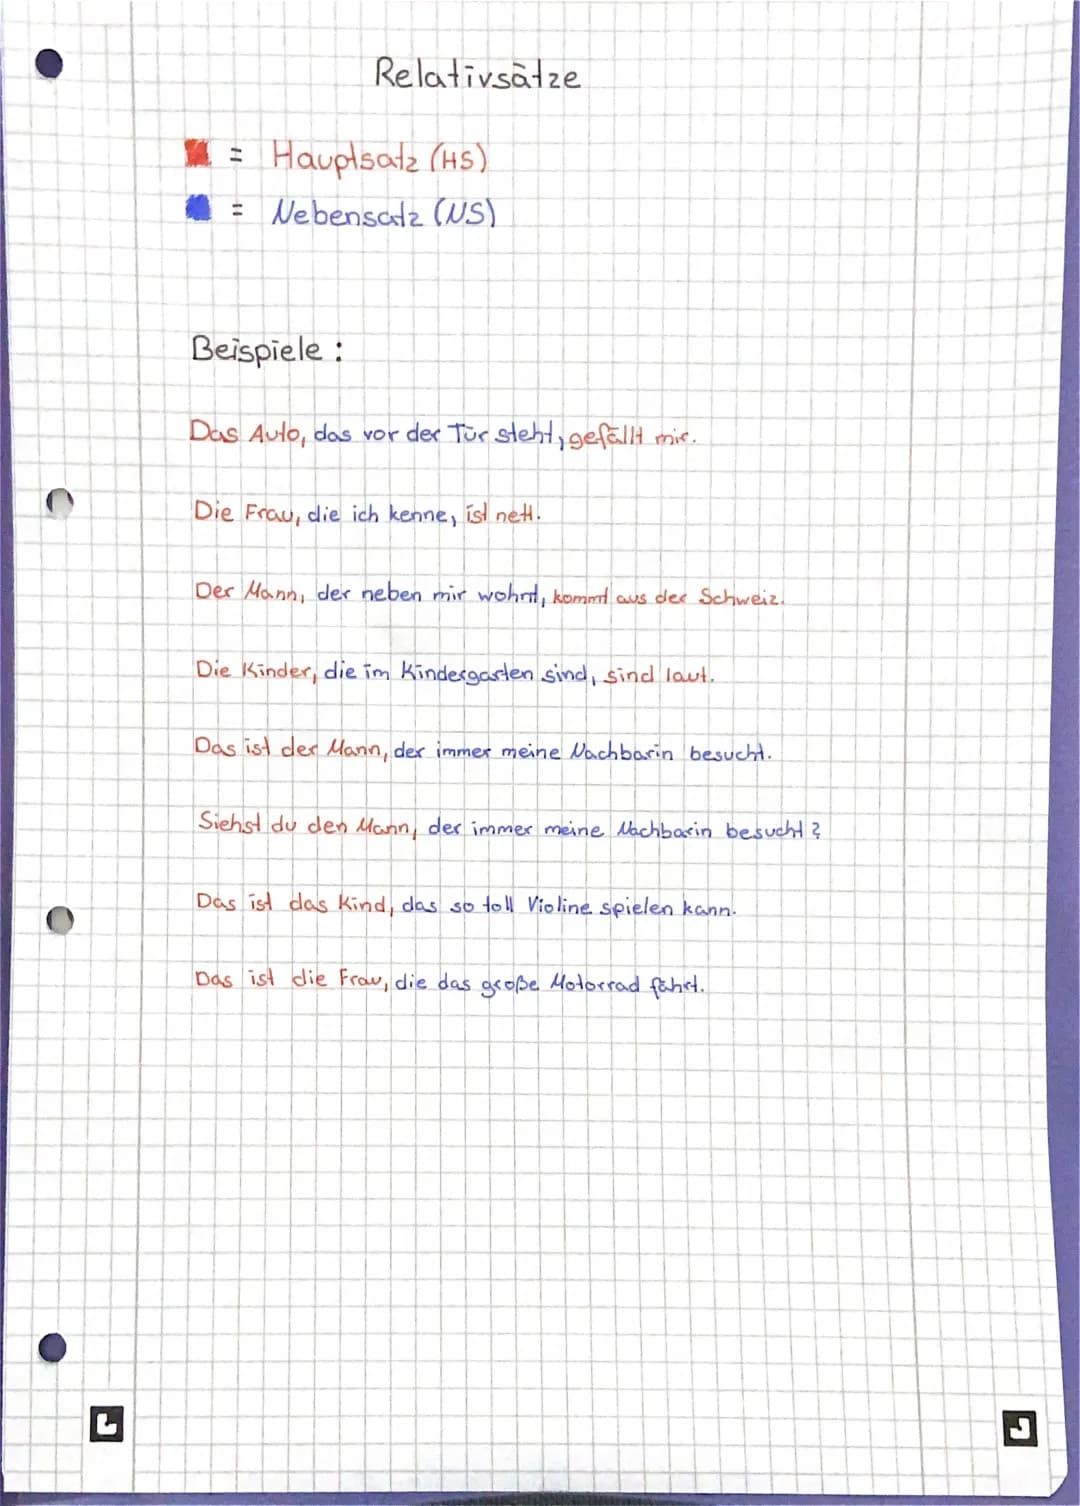 Relativsätze
= Hauptsatz (HS)
= Nebensatz (NS)
Beispiele :
Das Auto, das vor der Tür steht, gefällt mir.
Die Frau, die ich kenne, ist nett.
Der Mann, der neben mir wohnt, kommt aus der Schweiz.
Die Kinder, die im Kindergarten sind, sind laut.
Das ist der Mann, der immer meine Nachbarin besucht.
Siehst du den Mann, der immer meine Nachbarin besucht ?
Das ist das Kind, das so toll Violine spielen kann.
Das ist die Frau, die das große Motorrad fährt.